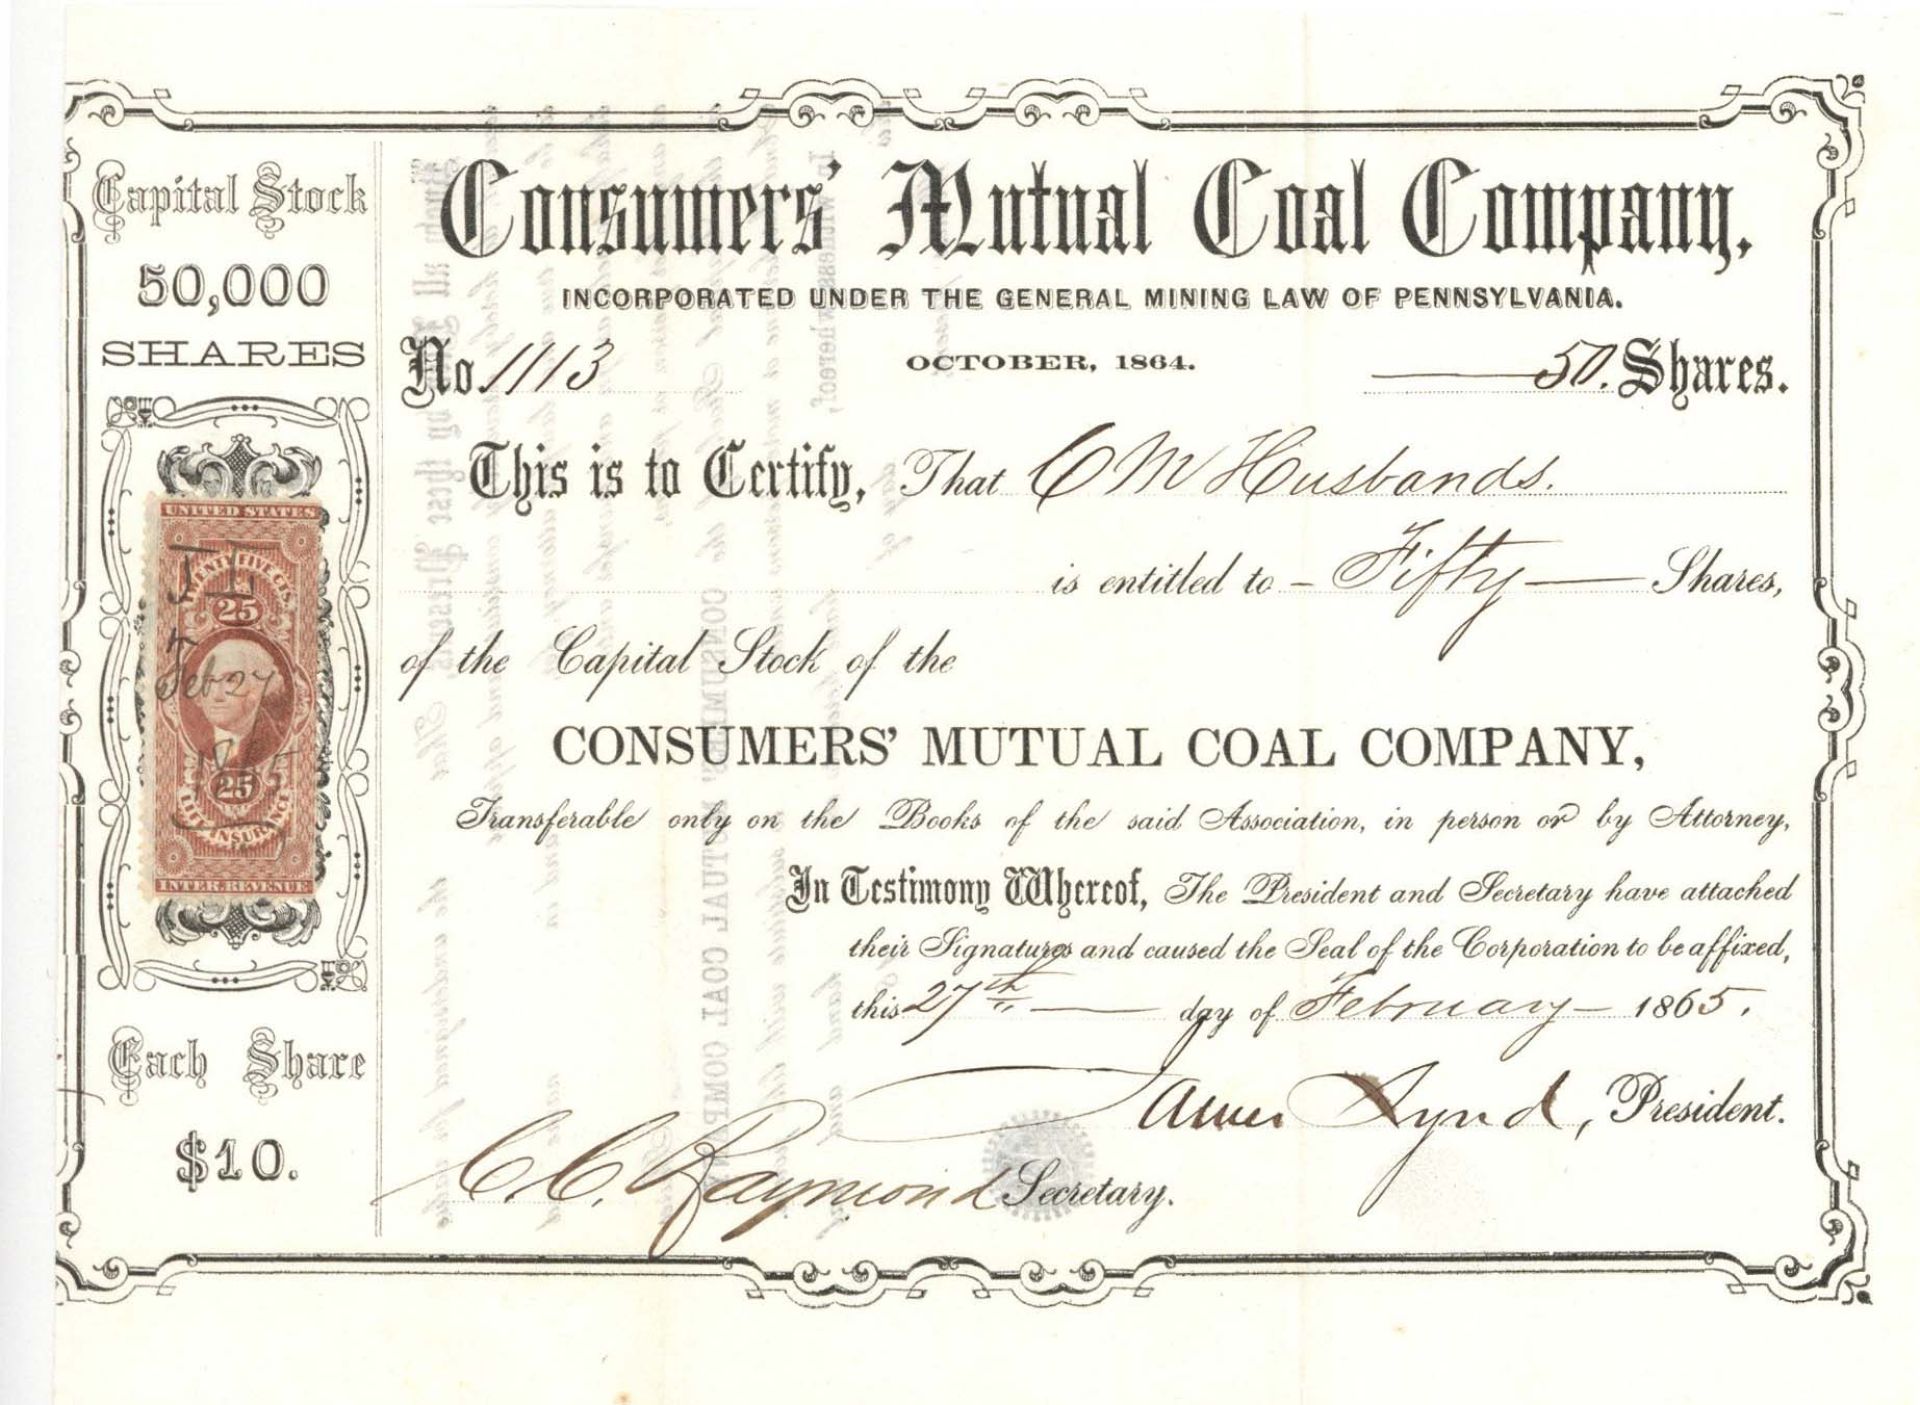 Capital Stock
50,000
SHARES
UNITED STATES
TWENTY FIVE CTS.
25
J L
Feb 27
1865
25
INSURANCE
INTER. REVENUE
Each Share
$10.
Consumers' Mutual Coal Company,
INCORPORATED UNDER THE GENERAL MINING LAW OF PENNSYLVANIA.
No. 1113 OCTOBER, 1864. 50. Shares.
This is to Certify, That C M Husbands.
is entitled to – Fifty — Shares,
of the Capital Stock of the
CONSUMERS' MUTUAL COAL COMPANY,
Transferable only on the Books of the said Association, in person or by Attorney,
In Testimony Whereof, The President and Secretary have attached
their Signatures and caused the Seal of the Corporation to be affixed,
this 27th — day of February – 1865.
Lynd, President.
C. C. Raymond Secretary.